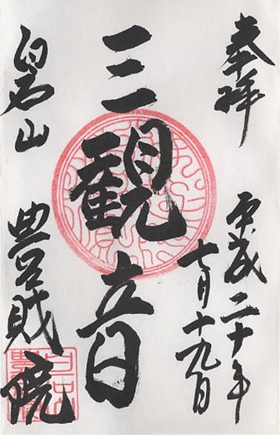 奉拝
平成二十年
七月十九日
三観音
白石山
豊財院